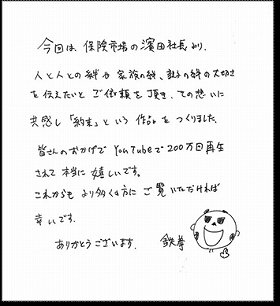 今回は、保険市場の濱田社長より、
人と人との絆や家族の絆、親子の絆の大切さ
を伝えたいとご依頼を頂き、その想いに
共感し「約束」という作品をつくりました。
皆さんのおかげでYouTubeで200万回再生
されて本当に嬉しいです。
これからもより多くの方にご覧いただければ
幸いです。
ありがとうございます。 鉄拳